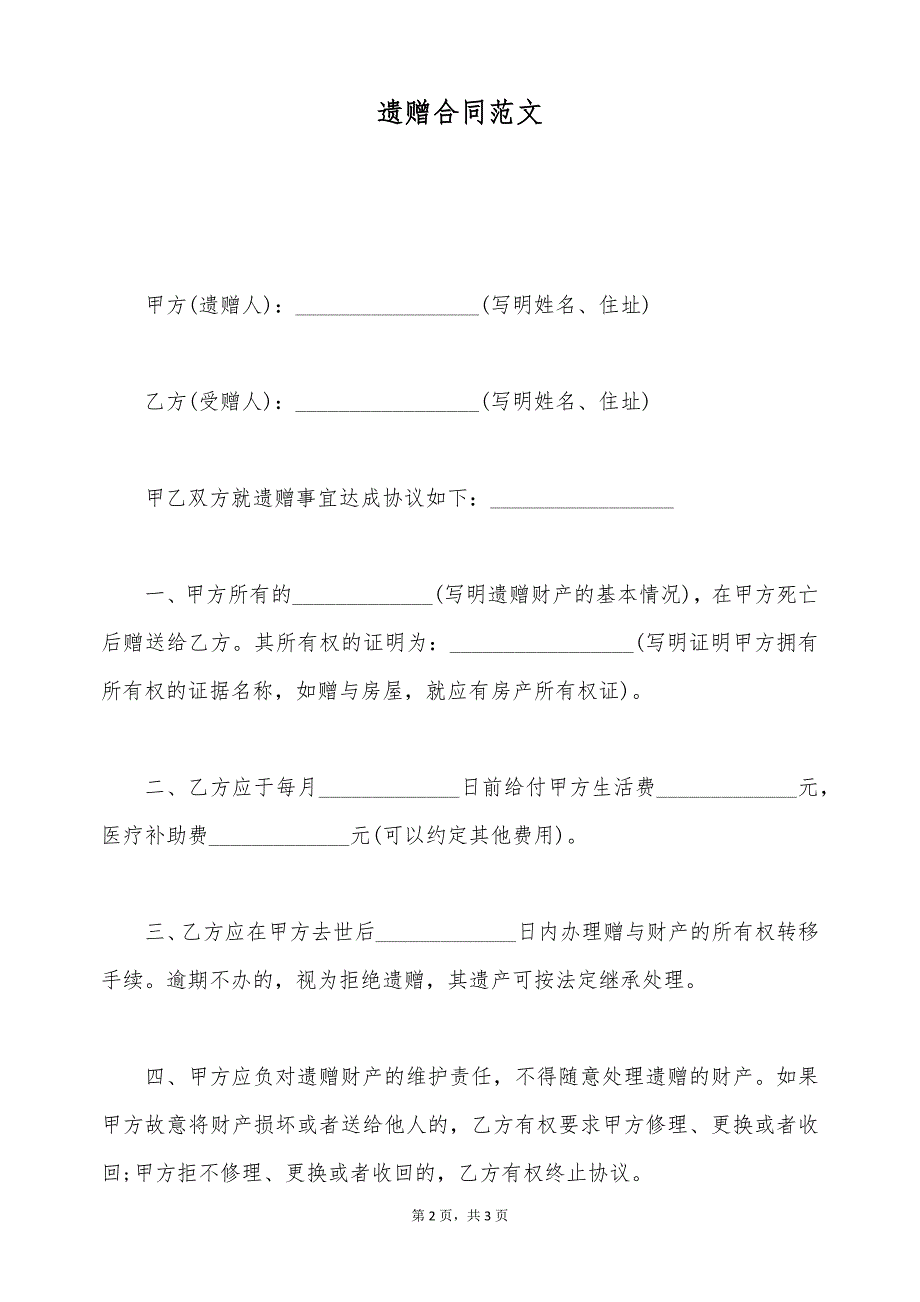 遗赠合同范文
甲方(遗赠人)：_________________(写明姓名、住址)
乙方(受赠人)：_________________(写明姓名、住址)
甲乙双方就遗赠事宜达成协议如下：_________________
一、甲方所有的_____________(写明遗赠财产的基本情况)，在甲方死亡
后赠送给乙方。其所有权的证明为：_________________(写明证明甲方拥有
所有权的证据名称，如赠与房屋，就应有房产所有权证)。
二、乙方应于每月_____________日前给付甲方生活费_____________元，
医疗补助费_____________元(可以约定其他费用)。
三、乙方应在甲方去世后_____________日内办理赠与财产的所有权转移
手续。逾期不办的，视为拒绝遗赠，其遗产可按法定继承处理。
四、甲方应负对遗赠财产的维护责任，不得随意处理遗赠的财产。如果
甲方故意将财产损坏或者送给他人的，乙方有权要求甲方修理、更换或者收
回;甲方拒不修理、更换或者收回的，乙方有权终止协议。
第 2 页，共 3 页